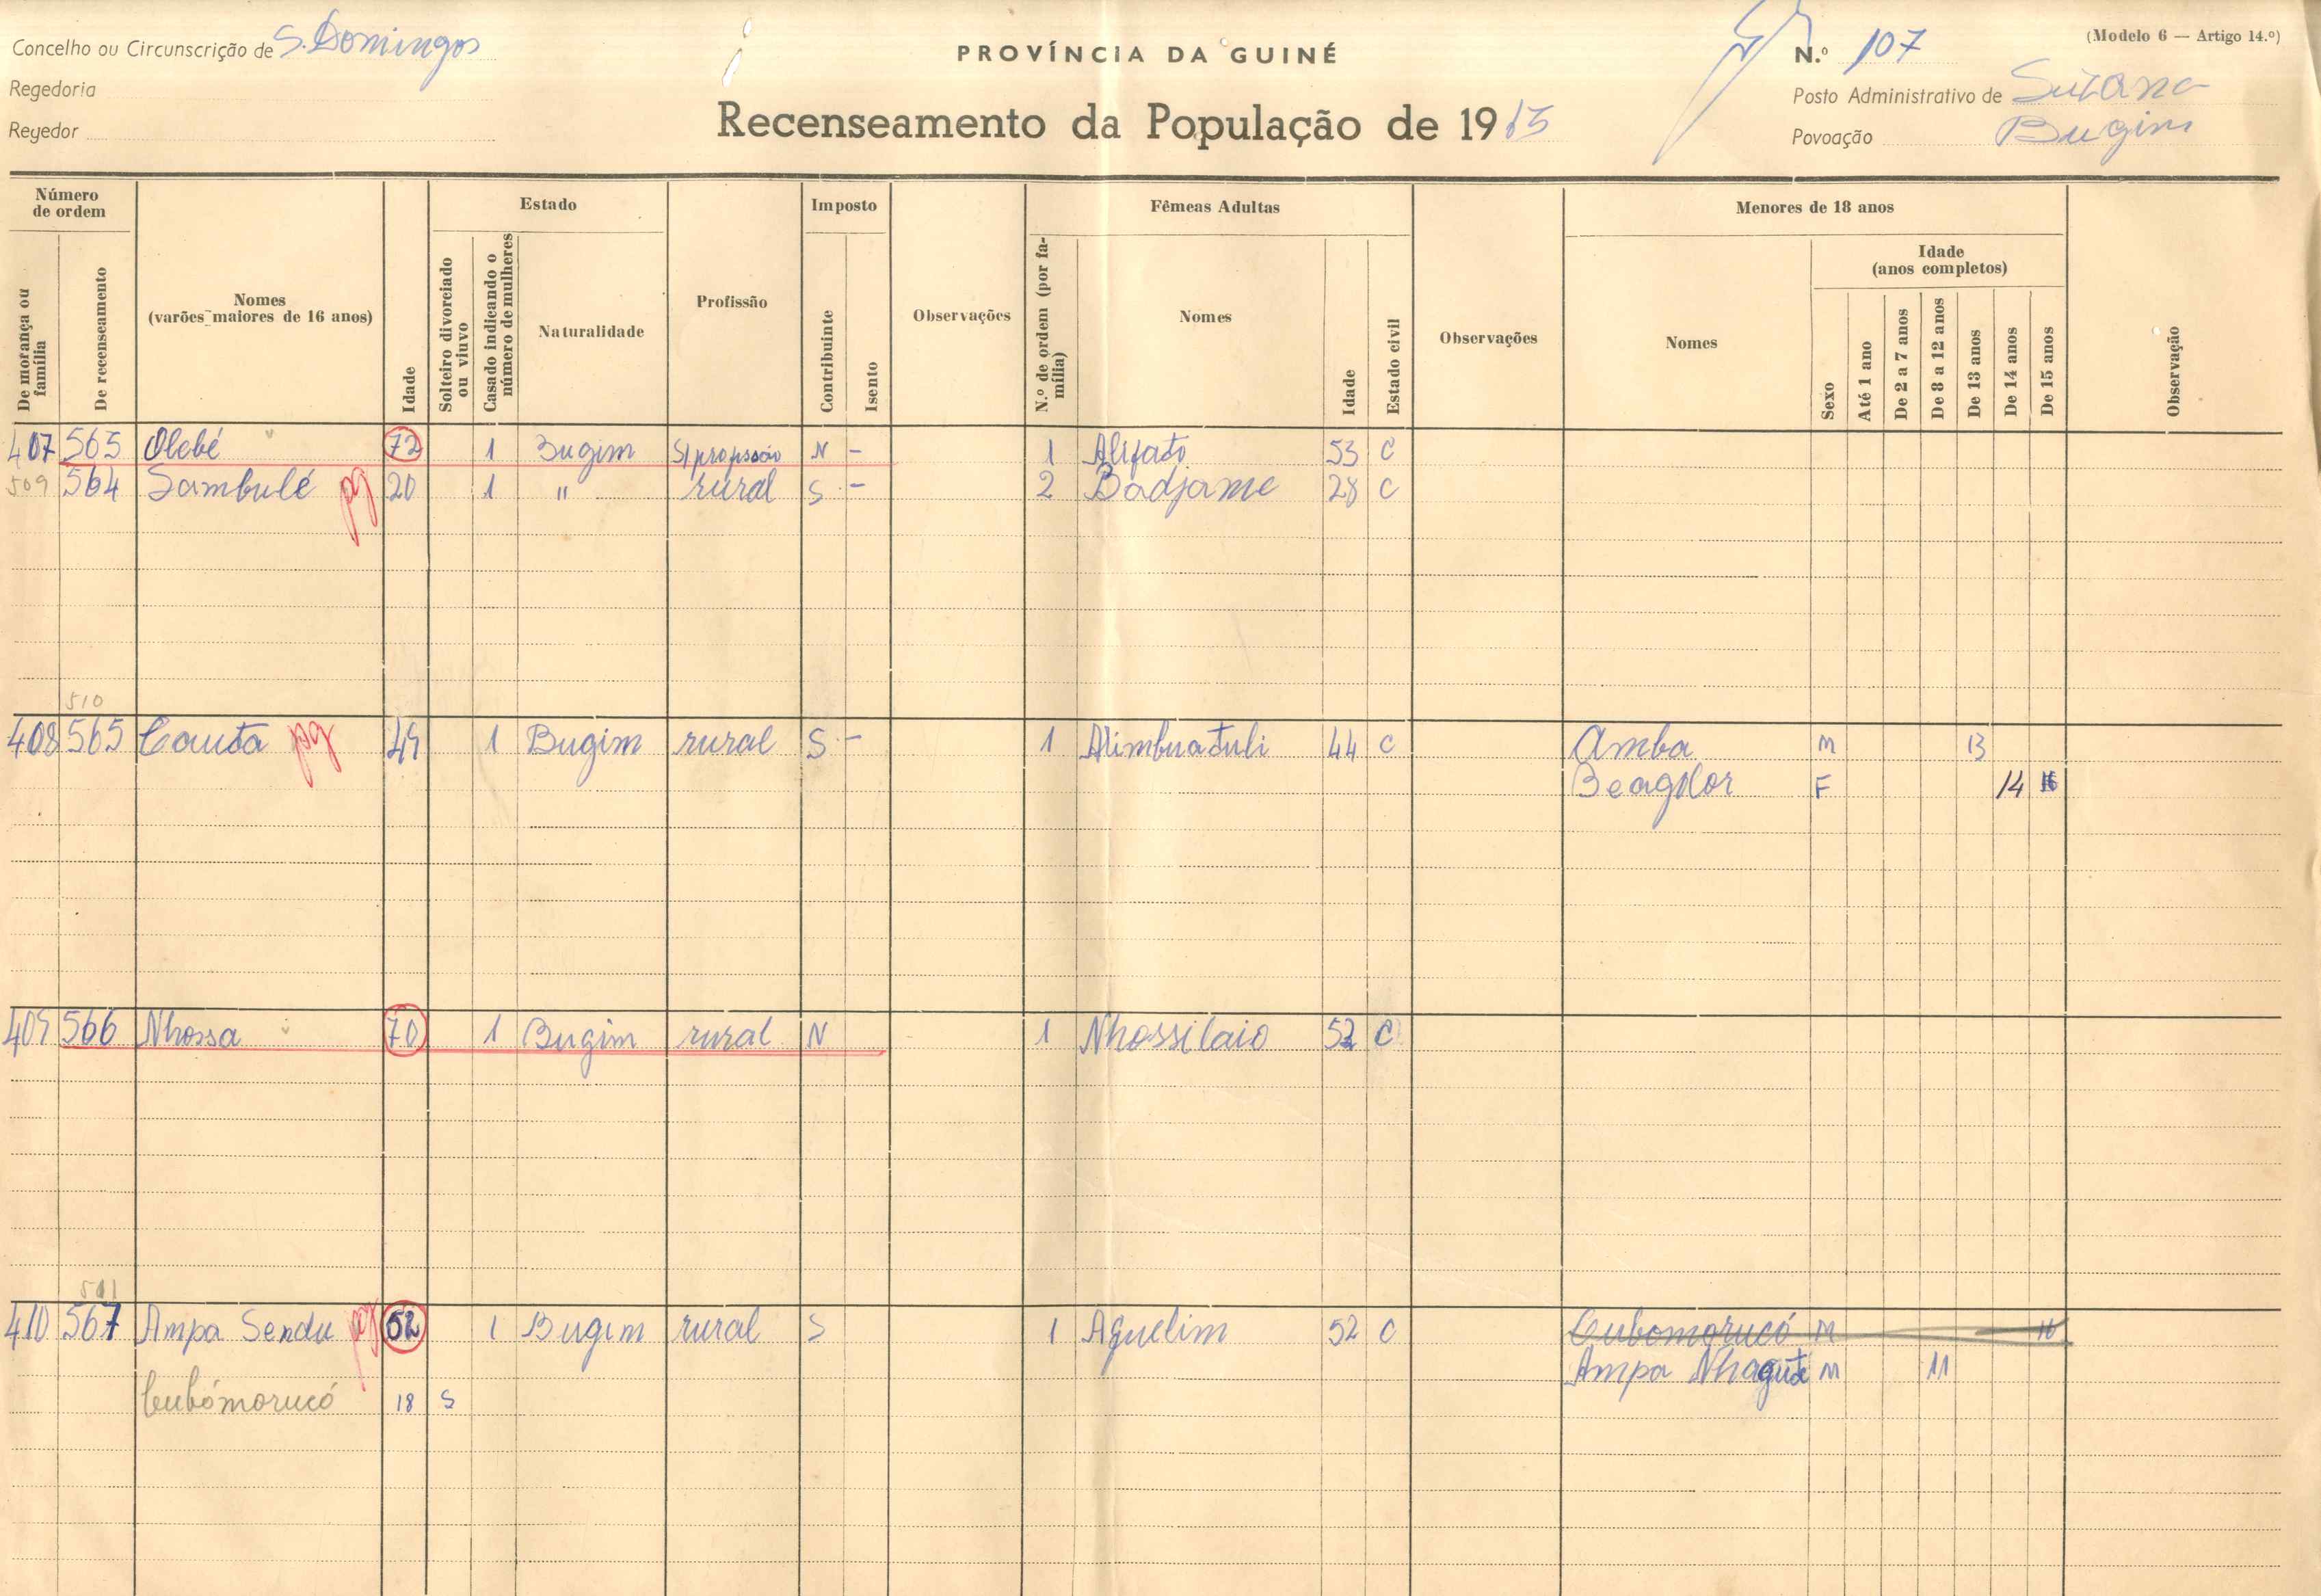 Concelho ou Circunscrição de S. Domingos
Regedoria
Regedor
PROVÍNCIA DA GUINÉ
Recenseamento da População de 1965
(Modelo 6 — Artigo 14.º)
N.º 107
Posto Administrativo de Suzana
Povoação Bugim
Número de ordem
De morança ou família
De recenseamento
Nomes (varões maiores de 16 anos)
Idade
Estado
Solteiro divorciado ou viuvo
Casado indicando o número de mulheres
Naturalidade
Profissão
Imposto
Contribuinte
Isento
Observações
Fêmeas Adultas
N.º de ordem (por família)
Nomes
Idade
Estado civil
Observações
Menores de 18 anos
Nomes
Sexo
Idade (anos completos)
Até 1 ano
De 2 a 7 anos
De 8 a 12 anos
De 13 anos
De 14 anos
De 15 anos
Observação
407 563 Olebé 72 1 Bugim S/profissão N - 1 Alifato 53 C
509 564 Sambulé pg 20 1 " rural S - 2 Badjame 28 C
510
408 565 Cauta pg 49 1 Bugim rural S - 1 Alimbuatuli 44 C Amba M 13
F 14
409 566 Nhossa 70 1 Bugim rural N 1 Nhossilaio 52 C
511
410 567 Ampa Sendu pg 52 1 Bugim rural S 1 Aguelim 52 C Cubomorucó M
Ampa Nhagute M 11
Cubómorucó 18 S